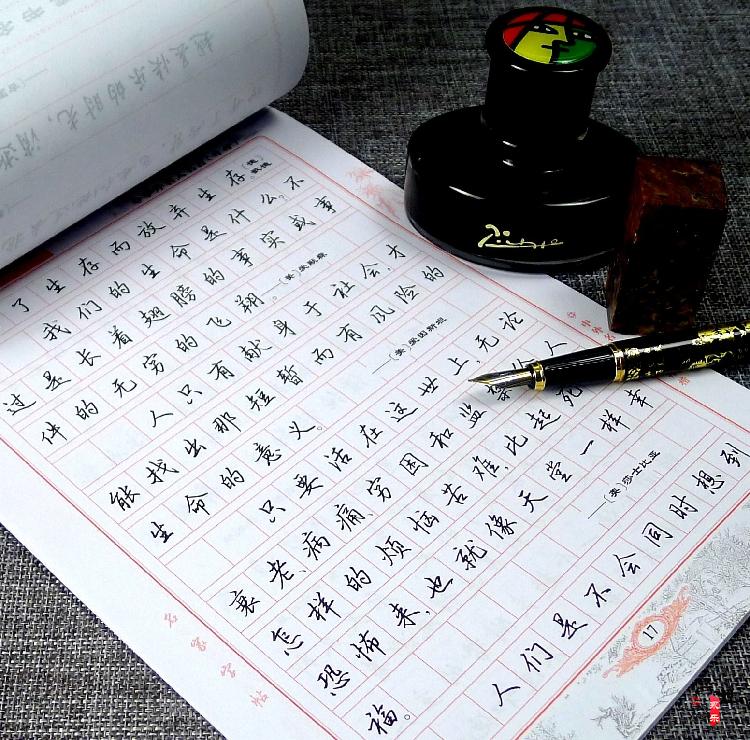 了生存而放弃生存。
我们的生命是什么?不
过是长着翅膀的事实或事
件的无穷的飞翔。
人只有献身于社会,才
能找出那短暂而有风险的
生命的意义。 ——(美)爱因斯坦
只要活在这世上,无论
衰老、病痛、穷困和监禁给人
怎样的烦恼苦难,比起死
恐怖来,也就像天堂一样幸
福。 ——(英)莎士比亚
人们是不会同时想到
17
名家字帖